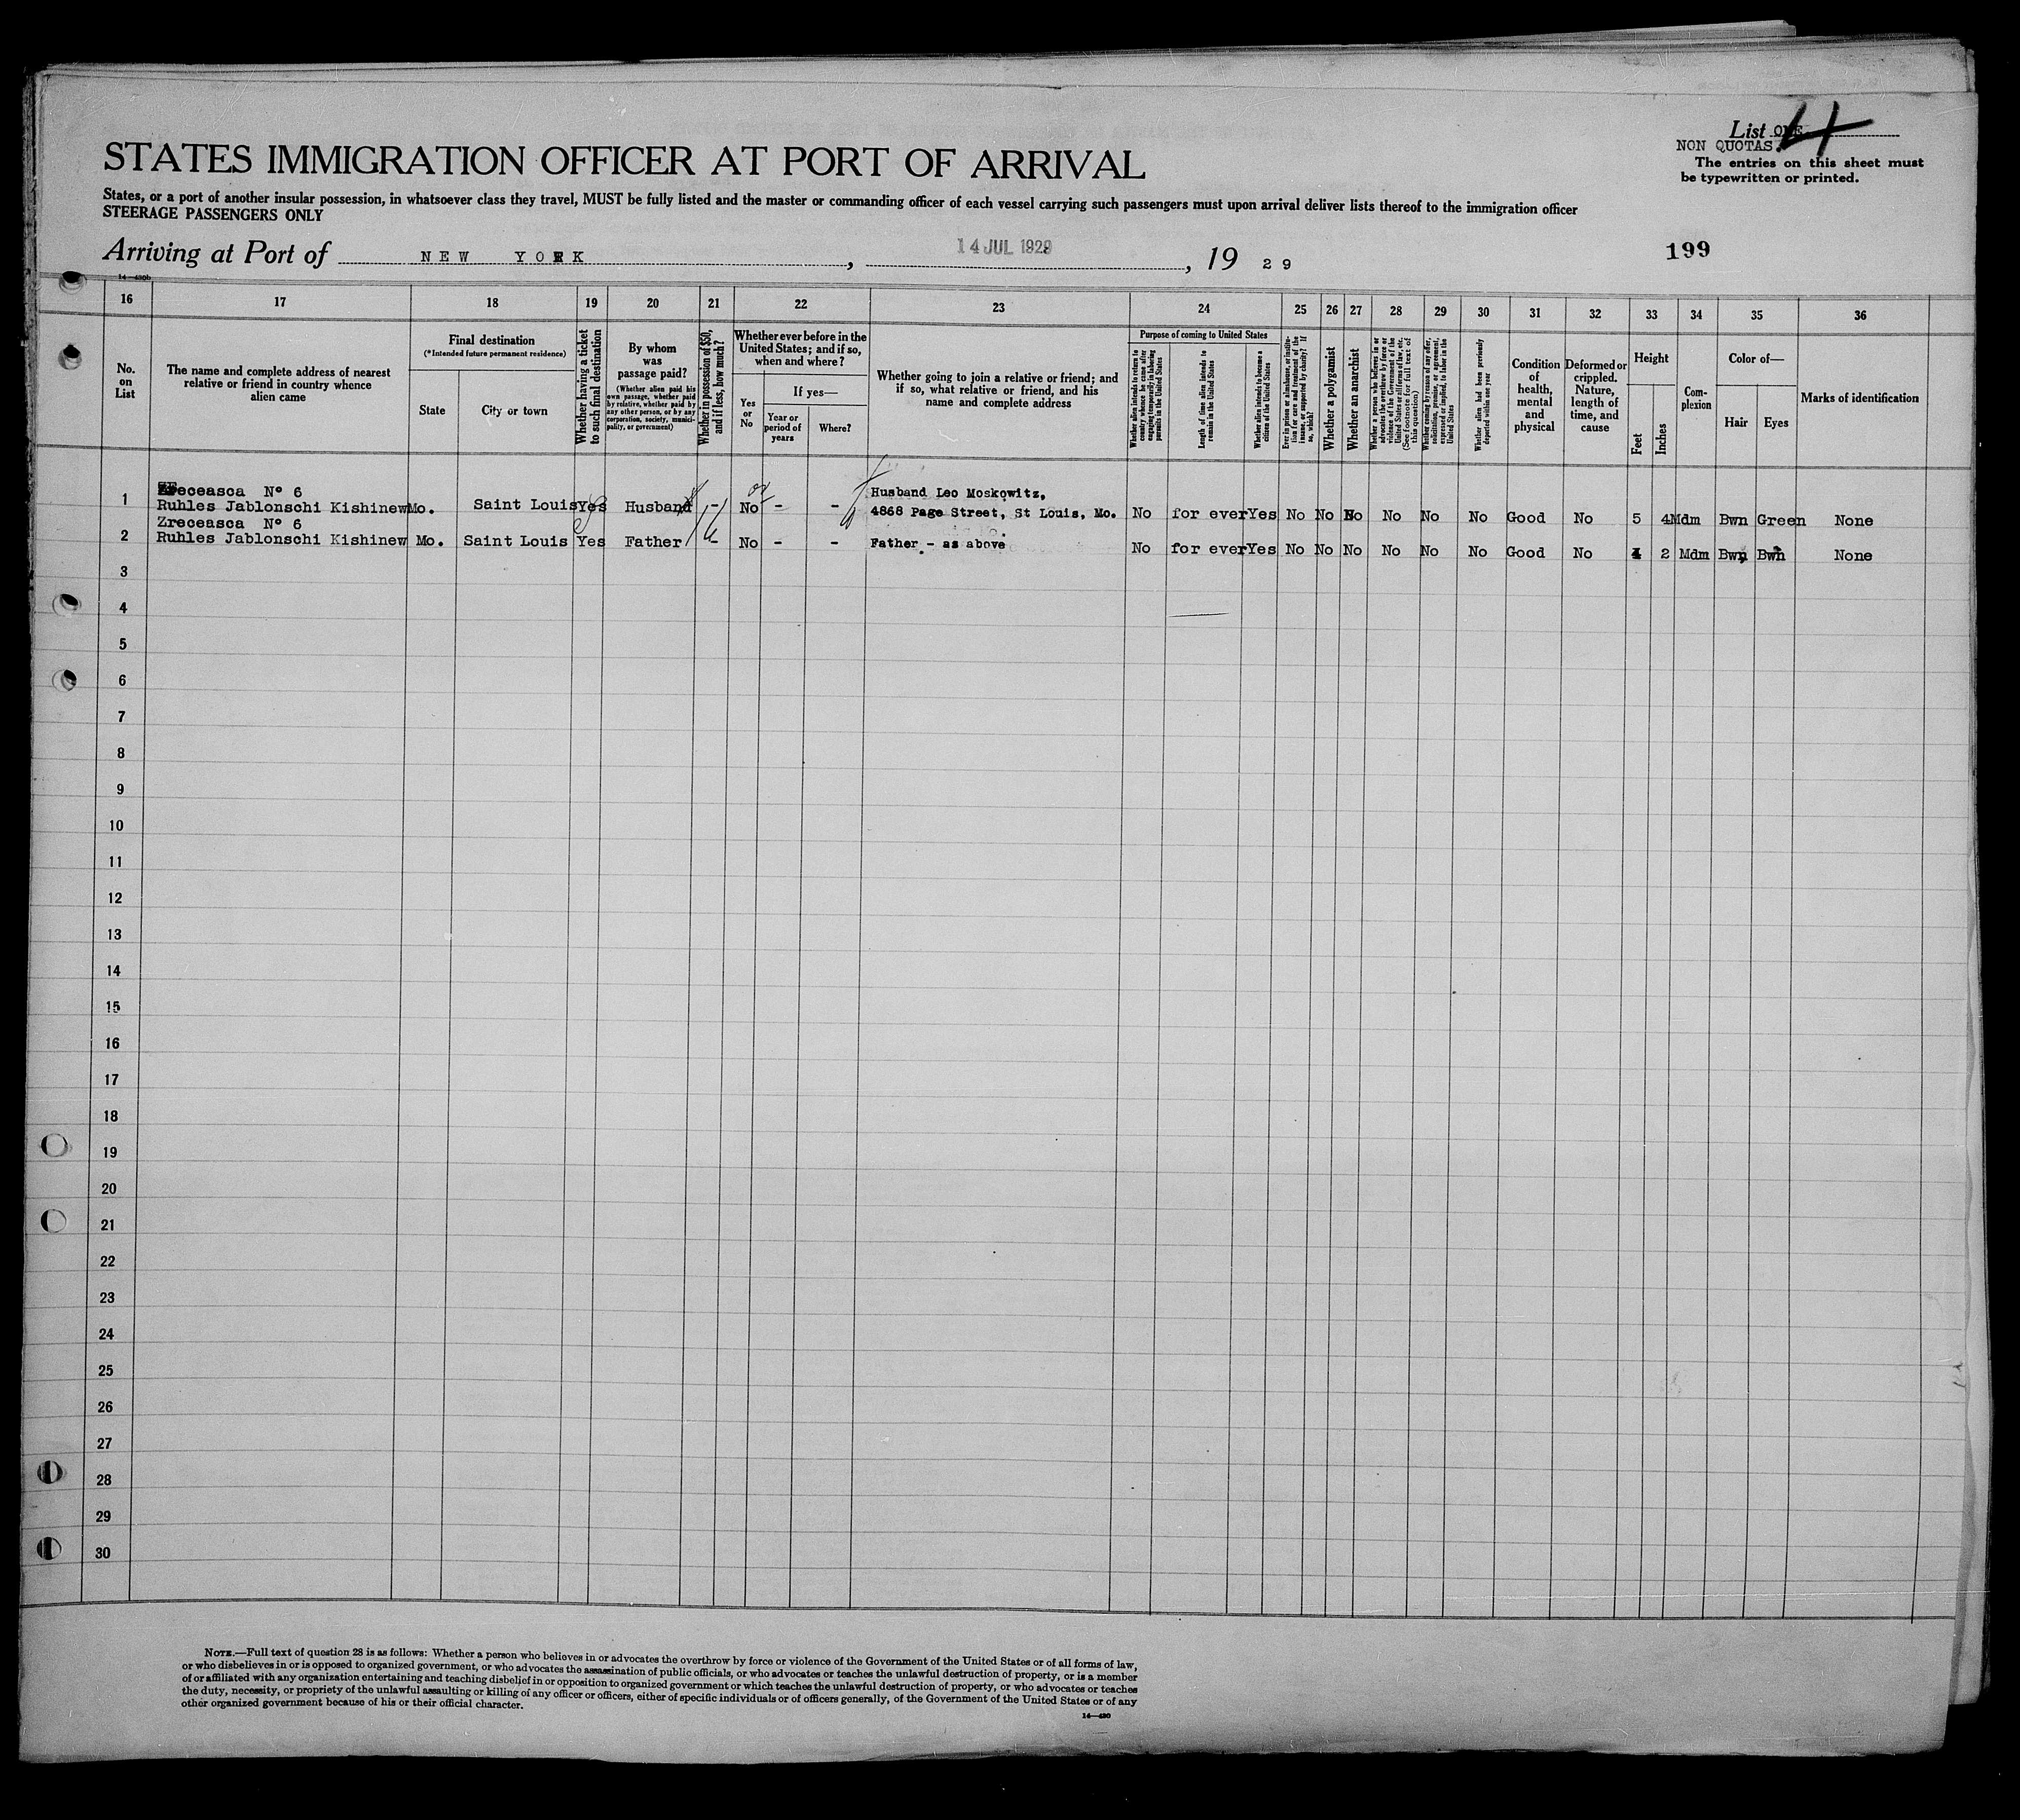 List ONE 4
NON QUOTAS.
The entries on this sheet must
be typewritten or printed.
STATES IMMIGRATION OFFICER AT PORT OF ARRIVAL
States, or a port of another insular possession, in whatsoever class they travel, MUST be fully listed and the master or commanding officer of each vessel carrying such passengers must upon arrival deliver lists thereof to the immigration officer
STEERAGE PASSENGERS ONLY
Arriving at Port of NEW YORK, 14 JUL 1929, 19 29
199
14—430b
16 17 18 19 20 21 22 23 24 25 26 27 28 29 30 31 32 33 34 35 36
No.
on
List
The name and complete address of nearest
relative or friend in country whence
alien came
Final destination
(*Intended future permanent residence)
State
City or town
Whether having a ticket
to such final destination
By whom
was
passage paid?
(Whether alien paid his
own passage, whether paid
by relative, whether paid by
any other person, or by any
corporation, society, munici-
pality, or government)
Whether in possession of $50,
and if less, how much?
Whether ever before in the
United States; and if so,
when and where?
Yes
or
No
If yes—
Year or
period of
years
Where?
Whether going to join a relative or friend; and
if so, what relative or friend, and his
name and complete address
Purpose of coming to United States
Whether alien intends to return to
country whence he came after
engaging temporarily in laboring
pursuits in the United States
Length of time alien intends to
remain in the United States
Whether alien intends to become a
citizen of the United States
Ever in prison or almshouse, or institu-
tion for care and treatment of the
insane, or supported by charity? If
so, which?
Whether a polygamist
Whether an anarchist
Whether a person who believes in or
advocates the overthrow by force or
violence of the Government of the
United States or all forms of law, etc.
(See footnote for full text of
this question)
Whether coming by reason of any offer,
solicitation, promise, or agreement,
expressed or implied, to labor in the
United States
Whether alien had been previously
deported within one year
Condition
of
health,
mental
and
physical
Deformed or
crippled.
Nature,
length of
time, and
cause
Height
Feet
Inches
Com-
plexion
Color of—
Hair
Eyes
Marks of identification
Zreceasca Nº 6
1 Ruhles Jablonschi Kishinew Mo. Saint Louis Yes Husband - No - - Husband Leo Moskowitz,
4868 Page Street, St Louis, Mo. No for ever Yes No No No No No No Good No 5 4 Mdm Bwn Green None
Zreceasca Nº 6
2 Ruhles Jablonschi Kishinew Mo. Saint Louis Yes Father - No - - Father - as above No for ever Yes No No No No No No Good No 4 2 Mdm Bwn Bwn None
3
4
5
6
7
8
9
10
11
12
13
14
15
16
17
18
19
20
21
22
23
24
25
26
27
28
29
30
NOTE.—Full text of question 28 is as follows: Whether a person who believes in or advocates the overthrow by force or violence of the Government of the United States or of all forms of law,
or who disbelieves in or is opposed to organized government, or who advocates the assassination of public officials, or who advocates or teaches the unlawful destruction of property, or is a member
of or affiliated with any organization entertaining and teaching disbelief in or opposition to organized government or which teaches the unlawful destruction of property, or who advocates or teaches
the duty, necessity, or propriety of the unlawful assaulting or killing of any officer or officers, either of specific individuals or of officers generally, of the Government of the United States or of any
other organized government because of his or their official character.
14—430